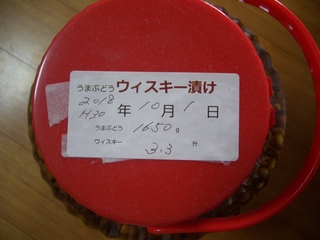 うまぶどう ウィスキー漬け
2018
H30 年 10月 1日
うまぶどう 1650 g
ウィスキー 3.3 升